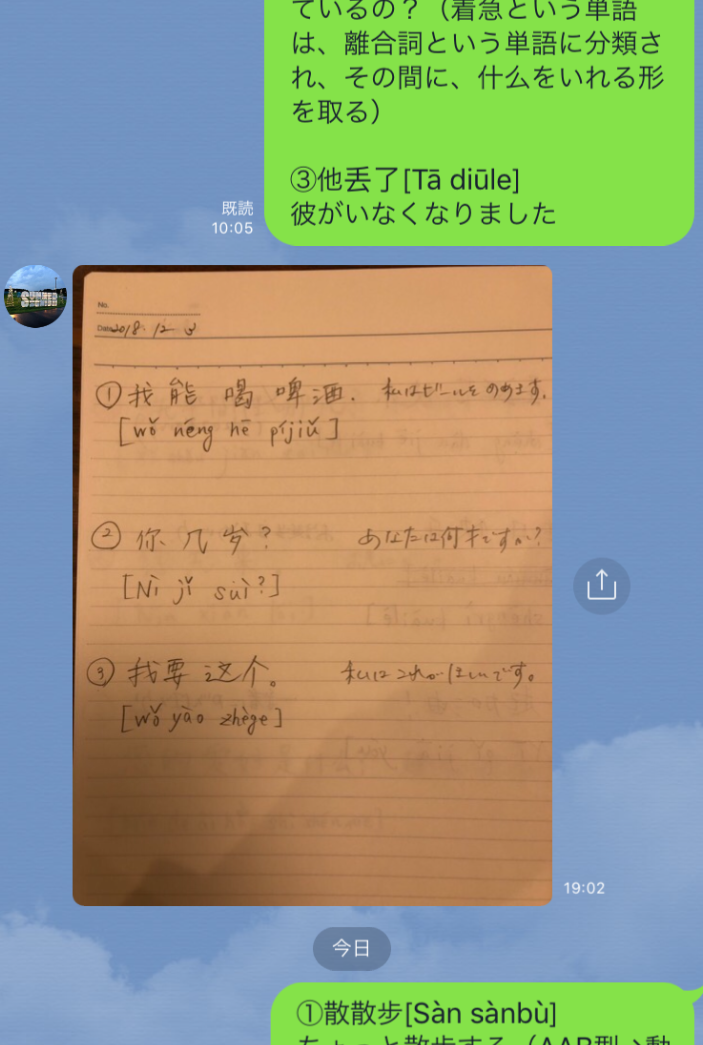 ているの？（着急という単語
は、離合詞という単語に分類さ
れ、その間に、什么をいれる形
を取る）
③他丢了[Tā diūle]
彼がいなくなりました
既読
10:05
No.
Date 2018. 12. 3
①我 能 喝 啤 酒. 私はビールをのめます.
[wǒ néng hē píjiǔ]
② 你 几 岁? あなたは何才ですか?
[Nǐ jǐ suì?]
③ 我要 这个。 私はこれがほしいです。
[wǒ yào zhège]
19:02
今日
①散散步[Sàn sànbù]
ちょっと散歩する（AAB型→動